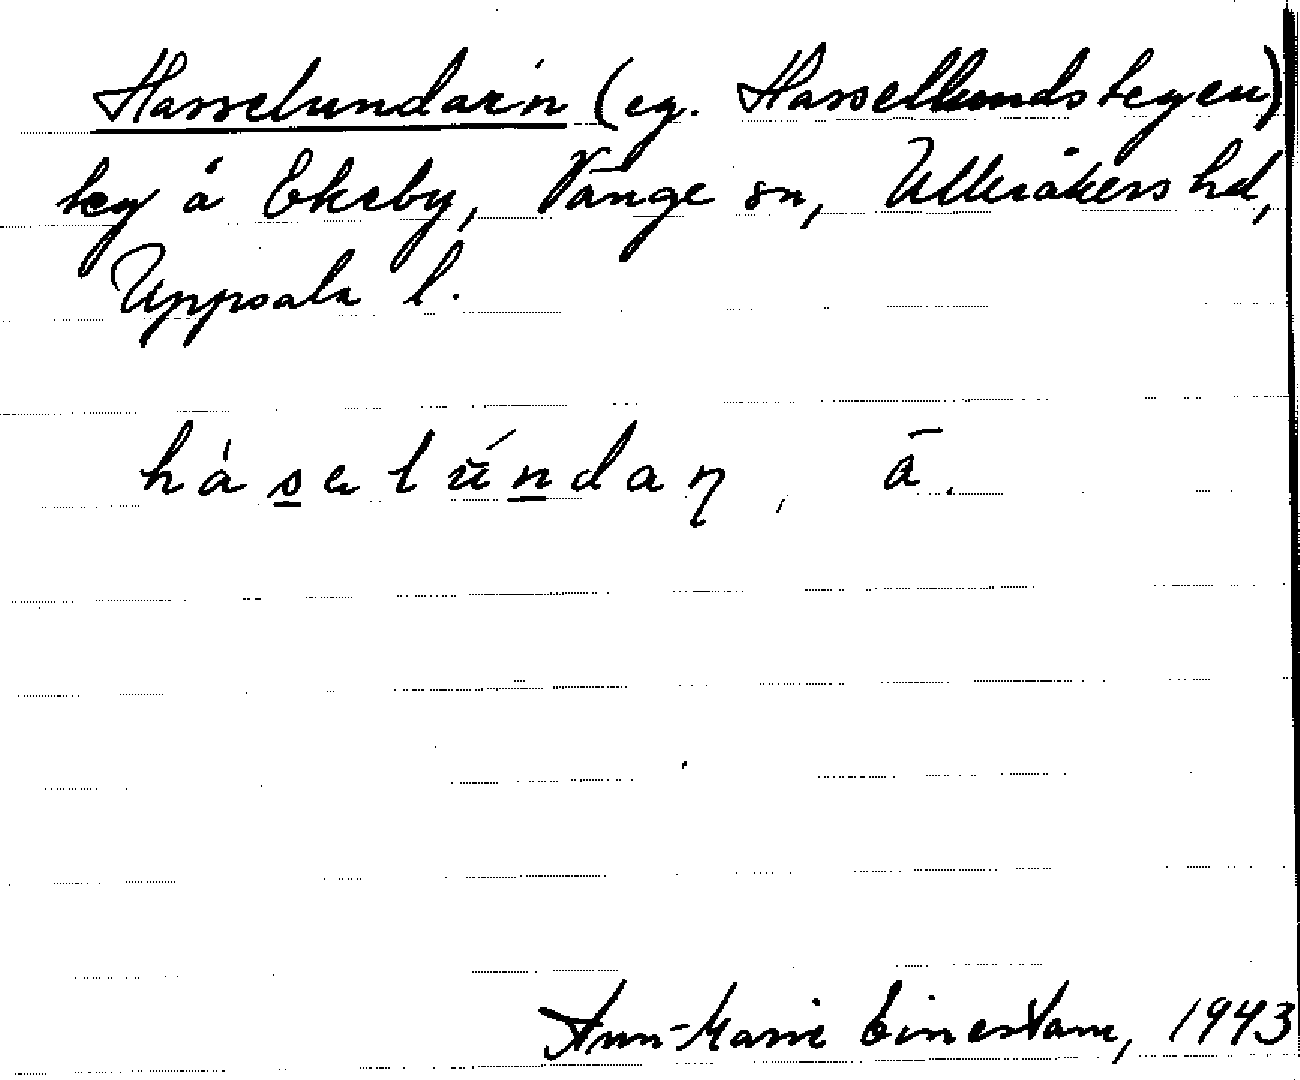 Hasselundarn (eg. Hassellundstegen)
teg å Ekeby, Vänge sn, Ulleråkers hd,
Uppsala l.
hásɐlúndaꞃ, ā.
Ann-Marie Einerstam, 1943